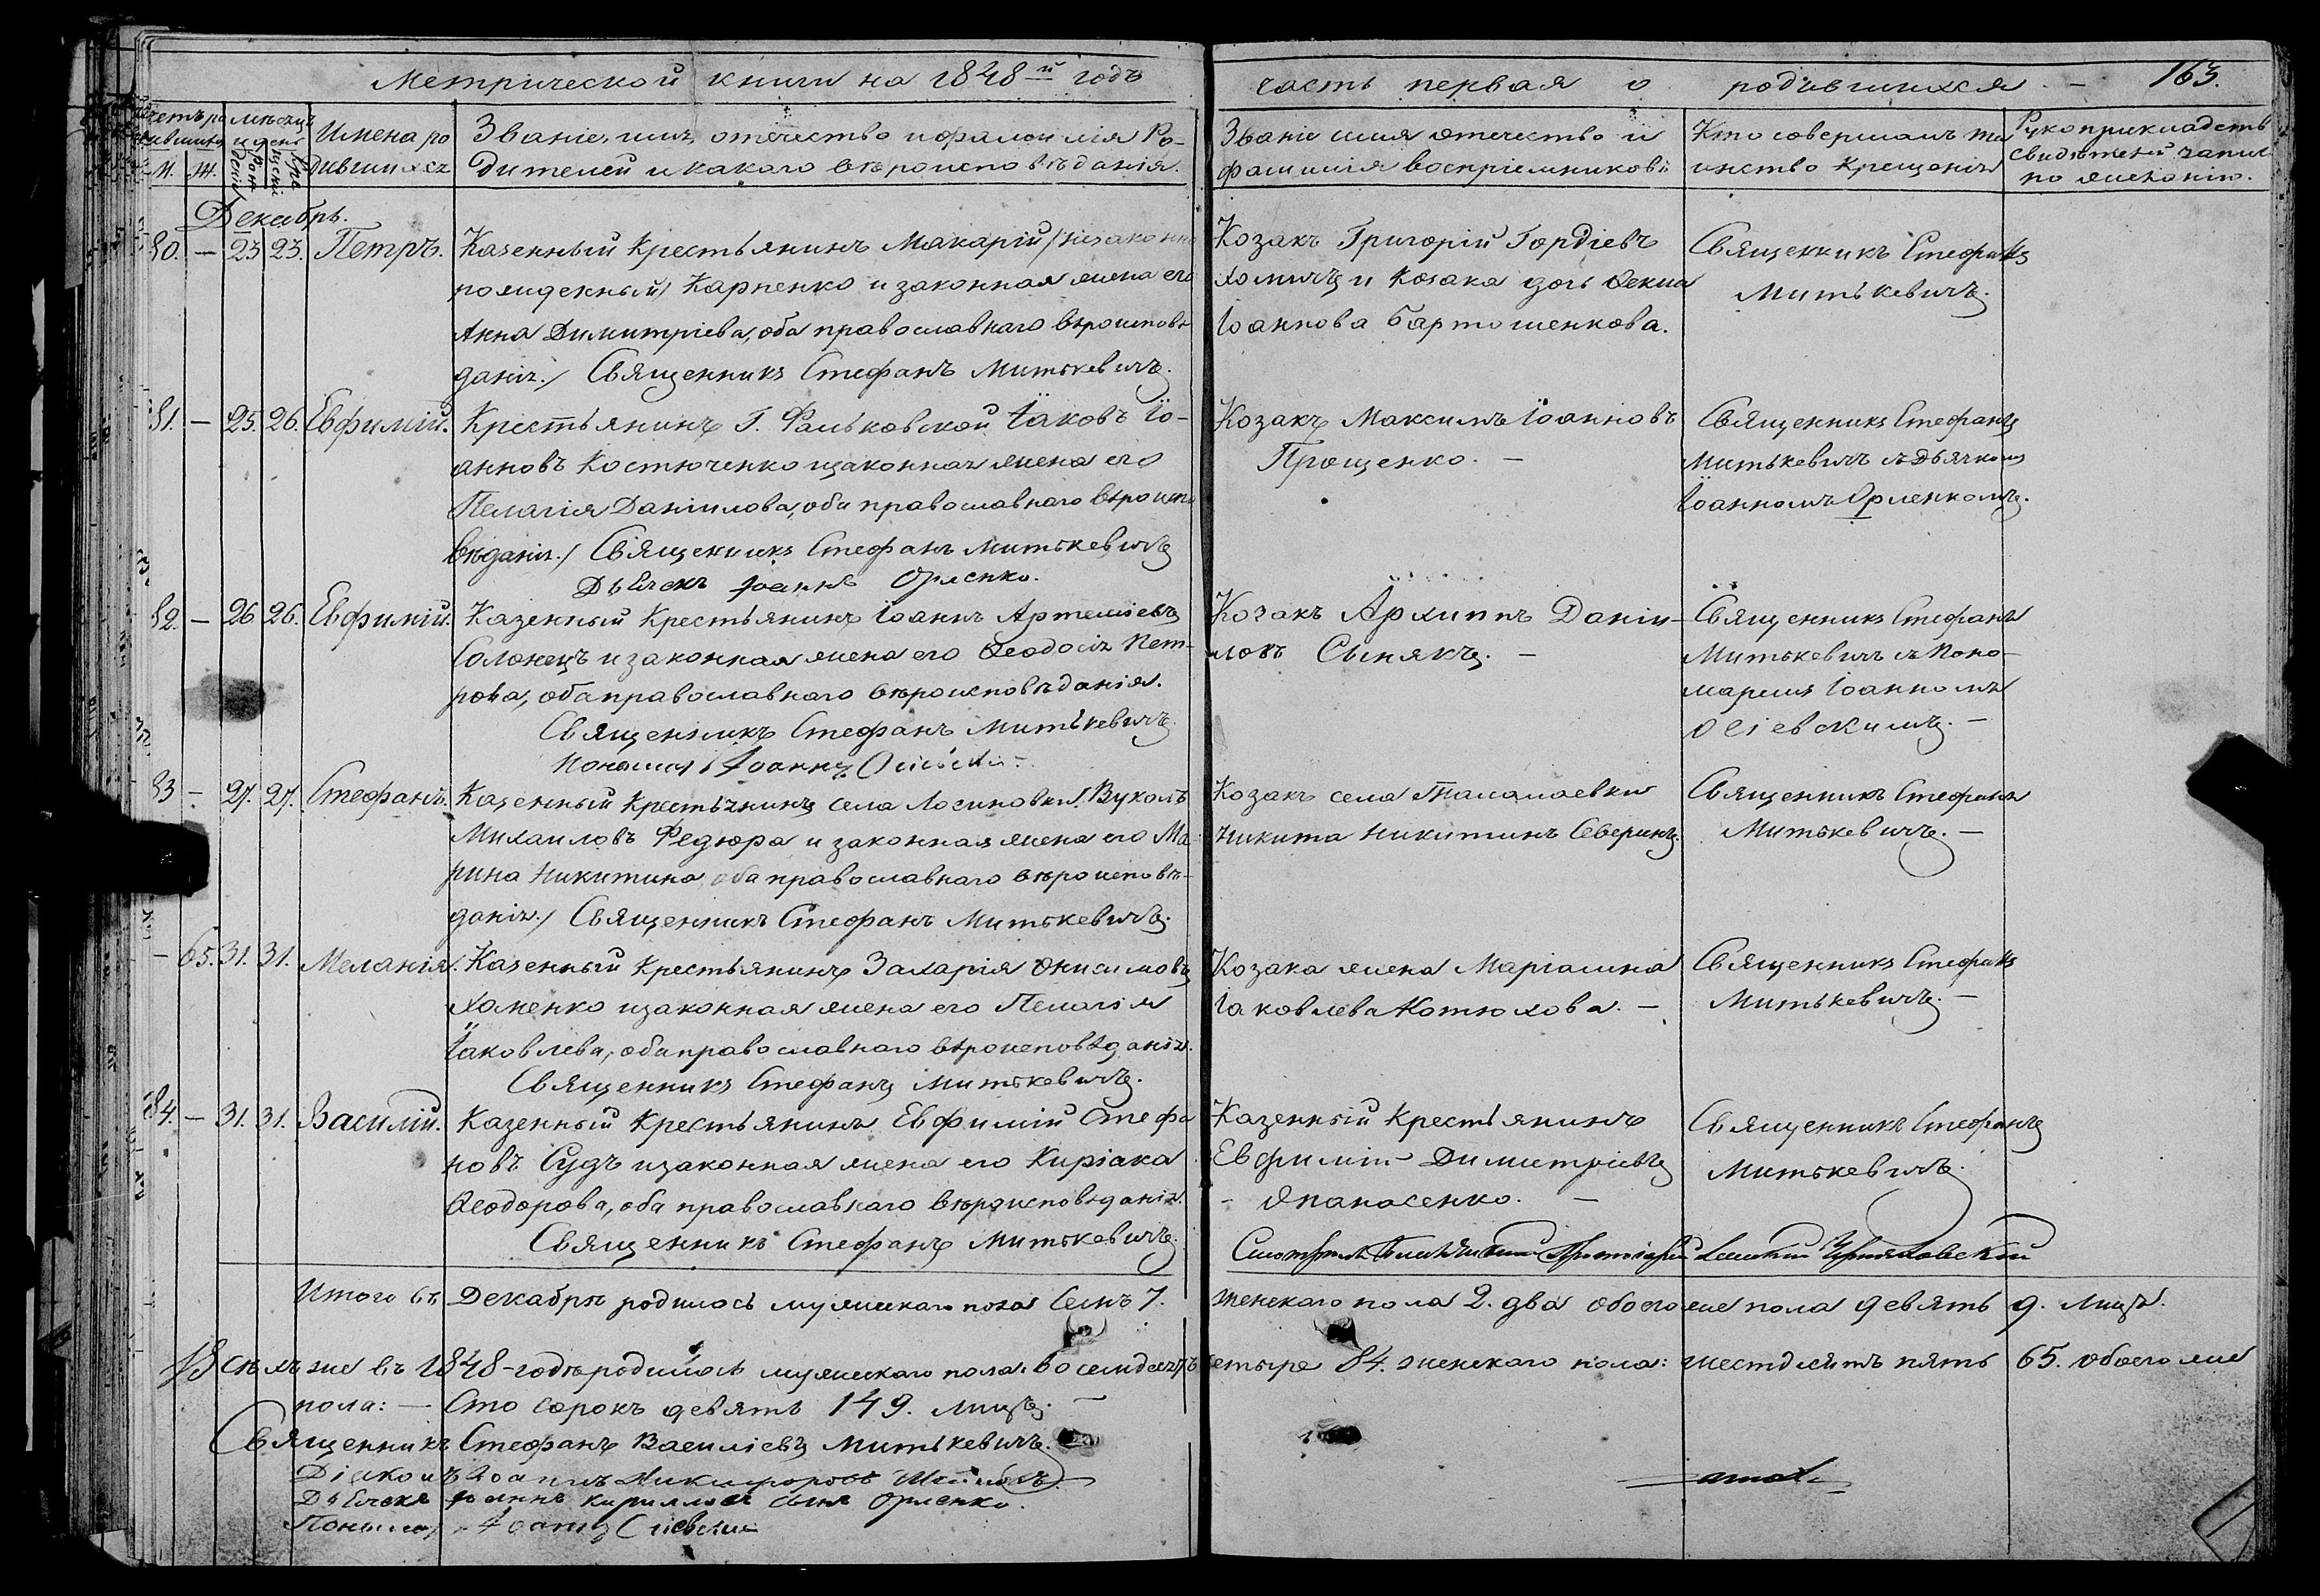 Метрической книги на 1848й годъ часть первая о родившихся. – 163.
Счетъ родившихся
М. Ж.
Мѣсяцъ и день
Имена родившихся
Званіе, имя, отечество и фамилія Родителей и какаго вѣроисповѣданія.
Званіе имя отечество и фамилія воспріемниковъ
Кто совершалъ таинство крещенія
Рукоприкладств свидѣтелей запис по желанію.
Декабрь.
80. – 23 23. Петръ.
Казенный крестьянинъ Макарій /незаконно
рожденный/ Карпенко и законная жена его
Анна Димитріева, оба православнаго вѣроисповѣ-
данія./ Священникъ Стефанъ Митькевичъ.
Козакъ Григорій Гордіевъ
Хомичъ и козака дочь Ѳекла
Іоаннова Бартошенкова.
Священникъ Стефанъ
Митькевичъ.
81. – 25. 26. Евфимій.
Крестьянинъ Г. Фальковской Іаковъ Іо-
анновъ Костюченко и законная жена его
Пелагія Даніилова, оба православнаго вѣроиспо
вѣданія./ Священникъ Стефанъ Митькевичъ
Дьячекъ Іоаннъ Орленко.
Козакъ Максимъ Іоанновъ
Прощенко. –
Священникъ Стефанъ
Митькевичъ съ Дьячкомъ
Іоанномъ Орленкомъ.
82. – 26 26. Евфимій.
Казенный крестьянинъ Іоаннъ Артеміевъ
Солонецъ и законная жена его Ѳеодосія Пет-
рова, оба православнаго вѣроисповѣданія.
Священникъ Стефанъ Митькевичъ.
Пономар Іоаннъ
Козакъ Архиппъ Даніи-
ловъ Сынякъ. –
Священникъ Стефанъ
Митькевичъ съ Поно-
маремъ Іоанномъ
Осіевскимъ. –
83 – 27. 27. Стефанъ.
Казенный крестьянинъ села Лосиновки Вуколъ
Михаиловъ Федюра и законная жена его Ма-
рина Никитина, оба православнаго вѣроисповѣ-
данія./ Священникъ Стефанъ Митькевичъ.
Козакъ села Талалаевки
Никита Никитинъ Северинъ.
Священникъ Стефанъ
Митькевичъ. –
– 65. 31. 31. Меланія.
Казенный крестьянинъ Захарія Онисимовъ
Хоменко и законная жена его Пелагія
Іаковлева, оба православнаго вѣроисповѣданія.
Священникъ Стефанъ Митькевичъ.
Козака жена Маріамна
Іаковлева Котюхова. –
Священникъ Стефанъ
Митькевичъ. –
84. – 31. 31. Василій.
Казенный крестьянинъ Евфимій Стефа
новъ Судъ и законная жена его Киріака
Ѳеодорова, оба православнаго вѣроисповѣданія.
Священникъ Стефанъ Митькевичъ.
Казенный крестьянинъ
Евфимій Димитріевъ
- Опанасенко. –
Священникъ Стефанъ
Митькевичъ.
Смотрѣлъ Благочинный Протоіерей Черняховский
Итого въ Декабрѣ родилось мужескаго пола Семь 7. женскаго пола 2. два обоего же пола девять 9. лицъ.
Всѣхъ же въ 1848-годѣ родилось мужескаго пола: восемдесятъ четыре 84. женскаго пола: шестдесятъ пять 65. обоего же
пола: – Сто сорокъ девять 149. лицъ. –
Священникъ Стефанъ Василіевъ Митькевичъ.
Діаконъ Іоаннъ Никифоровъ
Дьячекъ Іоаннъ Кирилловъ сынъ Орленко.
Пономар Іоаннъ